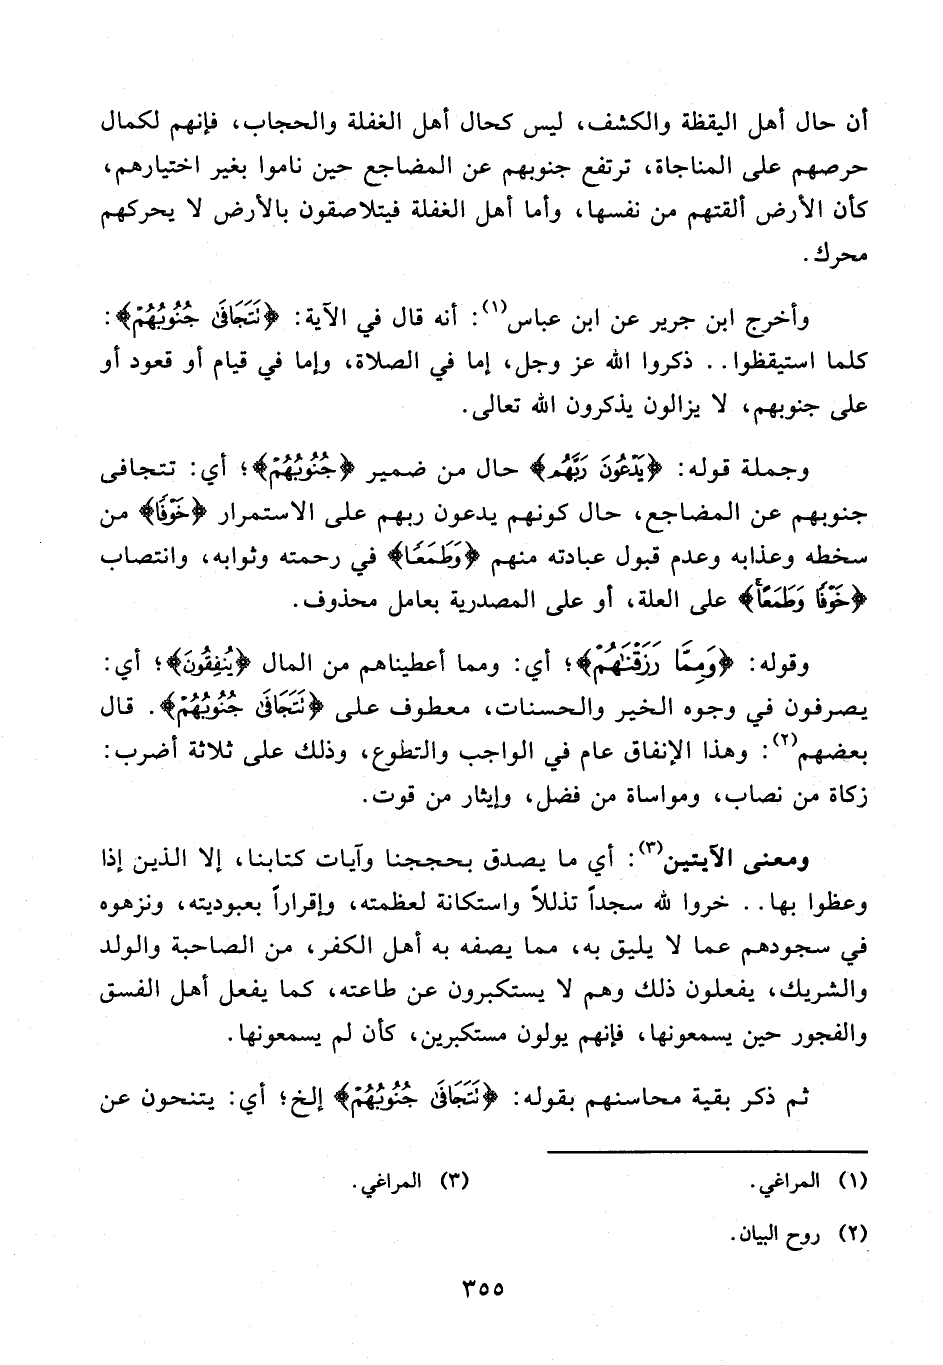 أن حال أهل اليقظة والكشف، ليس كحال أهل الغفلة والحجاب، فإنهم لكمال
حرصهم على المناجاة، ترتفع جنوبهم عن المضاجع حين ناموا بغير اختيارهم،
كأن الأرض ألقتهم من نفسها، وأما أهل الغفلة فيتلاصقون بالأرض لا يحركهم
محرك.
وأخرج ابن جرير عن ابن عباس(١): أنه قال في الآية: ﴿نَتَجَافَىٰ جُنُوبُهُمْ﴾:
كلما استيقظوا.. ذكروا الله عز وجل، إما في الصلاة، وإما في قيام أو قعود أو
على جنوبهم، لا يزالون يذكرون الله تعالى.
وجملة قوله: ﴿يَدْعُونَ رَبَّهُمْ﴾ حال من ضمير ﴿جُنُوبُهُمْ﴾؛ أي: تتجافى
جنوبهم عن المضاجع، حال كونهم يدعون ربهم على الاستمرار ﴿خَوْفًا﴾ من
سخطه وعذابه وعدم قبول عبادته منهم ﴿وَطَمَعًا﴾ في رحمته وثوابه، وانتصاب
﴿خَوْفًا وَطَمَعًا﴾ على العلة، أو على المصدرية بعامل محذوف.
وقوله: ﴿وَمِمَّا رَزَقْنَٰهُمْ﴾؛ أي: ومما أعطيناهم من المال ﴿يُنفِقُونَ﴾؛ أي:
يصرفون في وجوه الخير والحسنات، معطوف على ﴿نَتَجَافَىٰ جُنُوبُهُمْ﴾. قال
بعضهم(٢): وهذا الإنفاق عام في الواجب والتطوع، وذلك على ثلاثة أضرب:
زكاة من نصاب، ومواساة من فضل، وإيثار من قوت.
ومعنى الآيتين(٣): أي ما يصدق بحججنا وآيات كتابنا، إلا الذين إذا
وعظوا بها.. خروا لله سجداً تذللاً واستكانة لعظمته، وإقراراً بعبوديته، ونزهوه
في سجودهم عما لا يليق به، مما يصفه به أهل الكفر، من الصاحبة والولد
والشريك، يفعلون ذلك وهم لا يستكبرون عن طاعته، كما يفعل أهل الفسق
والفجور حين يسمعونها، فإنهم يولون مستكبرين، كأن لم يسمعونها.
ثم ذكر بقية محاسنهم بقوله: ﴿نَتَجَافَىٰ جُنُوبُهُمْ﴾ إلخ؛ أي: يتنحون عن
(١) المراغي.
(٢) روح البيان.
(٣) المراغي.
٣٥٥